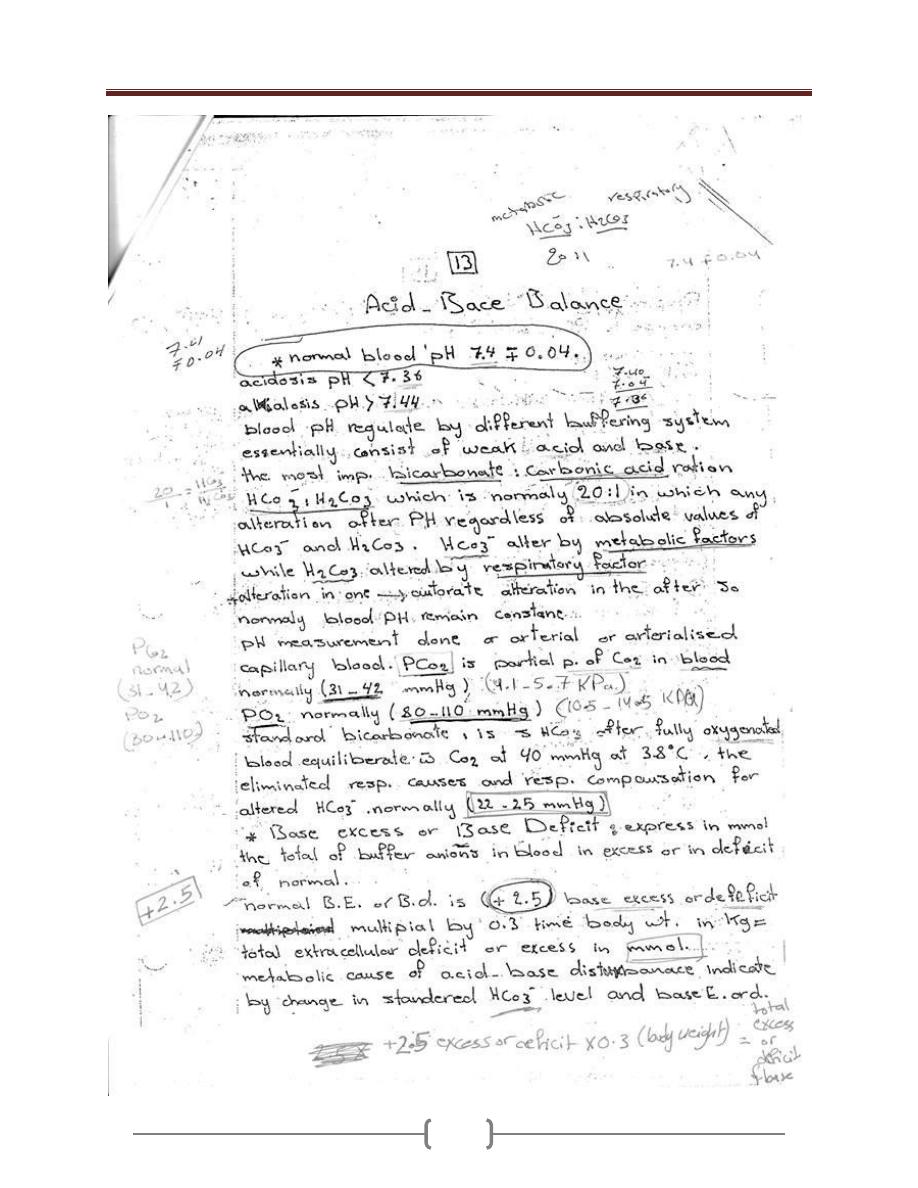 metabolic respiratory
HCO3⁻ : H2CO3
20 : 1
7.4 ∓ 0.04
13
Acid - Bace Balance
7.41
∓ 0.04
* normal blood pH 7.4 ∓ 0.04.
acidosis pH < 7.36
7.40
7.04
7.36
alkalosis pH > 7.44
blood pH regulate by different buffering system
essentially consist of weak acid and base.
the most imp. bicarbonate : carbonic acid ration
20/1 = HCO3/H2CO3
HCO3⁻ : H2CO3 which is normaly 20:1 in which any
alteration after PH regardless of absolute values of
HCO3⁻ and H2CO3. HCO3⁻ alter by metabolic factors
while H2CO3 altered by respiratory factor
*alteration in one → autorate alteration in the after so
normaly blood PH remain constane.
pH measurement done or arterial or arterialised
capillary blood. PCO2 is partial p. of CO2 in blood
PCO2
normal
(31-42)
PO2
(80-110)
normally (31-42 mmHg) (4.1-5.7 KPa)
PO2 normally (80-110 mmHg) (10.5-14.5 KPa)
standard bicarbonate, is s HCO3 after fully oxygenated
blood equiliberate w̄ CO2 at 40 mmHg at 3.8°C, the
eliminated resp. causes and resp. compausation for
altered HCO3⁻ .normally (22-25 mmHg)
* Base excess or Base Deficit : express in mmol
the total of buffer anions in blood in excess or in deficit
of normal.
+2.5
normal B.E. or B.d. is (+ 2.5) base excess or deficit
multipial by 0.3 time body wt. in Kg =
total extracellular deficit or excess in mmol.
metabolic cause of acid-base disturbanace, indicate
by change in standered HCO3⁻ level and base E. or d.
+2.5 excess or deficit x 0.3 (body weight) = total
excess
or
deficit
of base